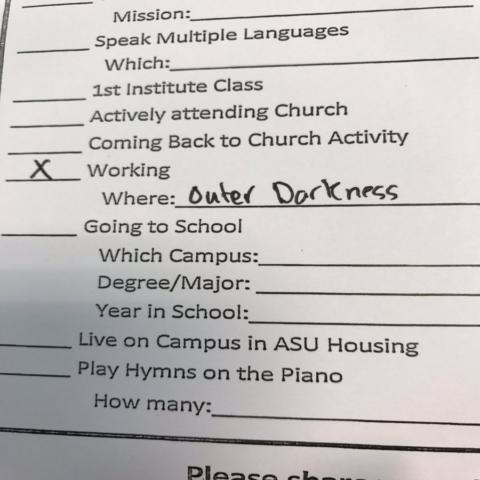 Mission:
Speak Multiple Languages
Which:
1st Institute Class
Actively attending Church
Coming Back to Church Activity
X Working
Where: Outer Darkness
Going to School
Which Campus:
Degree/Major:
Year in School:
Live on Campus in ASU Housing
Play Hymns on the Piano
How many:
Please